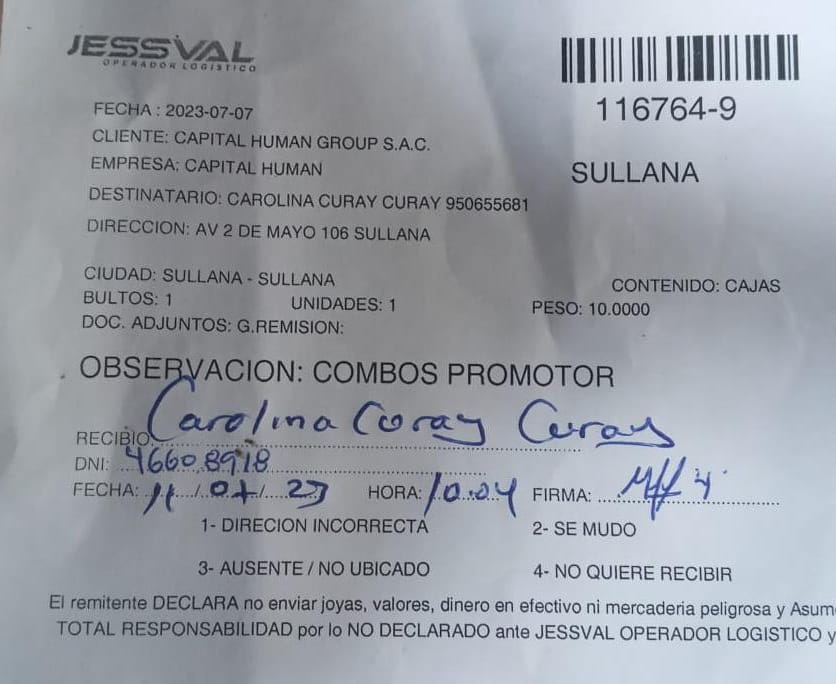 JESSVAL
OPERADOR LOGISTICO
116764-9
FECHA : 2023-07-07
CLIENTE: CAPITAL HUMAN GROUP S.A.C.
EMPRESA: CAPITAL HUMAN
SULLANA
DESTINATARIO: CAROLINA CURAY CURAY 950655681
DIRECCION: AV 2 DE MAYO 106 SULLANA
CIUDAD: SULLANA - SULLANA
CONTENIDO: CAJAS
BULTOS: 1 UNIDADES: 1 PESO: 10.0000
DOC. ADJUNTOS: G.REMISION:
OBSERVACION: COMBOS PROMOTOR
RECIBIO: Carolina Curay Curay
DNI: 46608918
FECHA: 11/07/23 HORA: 10:04 FIRMA:
1- DIRECION INCORRECTA 2- SE MUDO
3- AUSENTE / NO UBICADO 4- NO QUIERE RECIBIR
El remitente DECLARA no enviar joyas, valores, dinero en efectivo ni mercaderia peligrosa y Asum
TOTAL RESPONSABILIDAD por lo NO DECLARADO ante JESSVAL OPERADOR LOGISTICO y